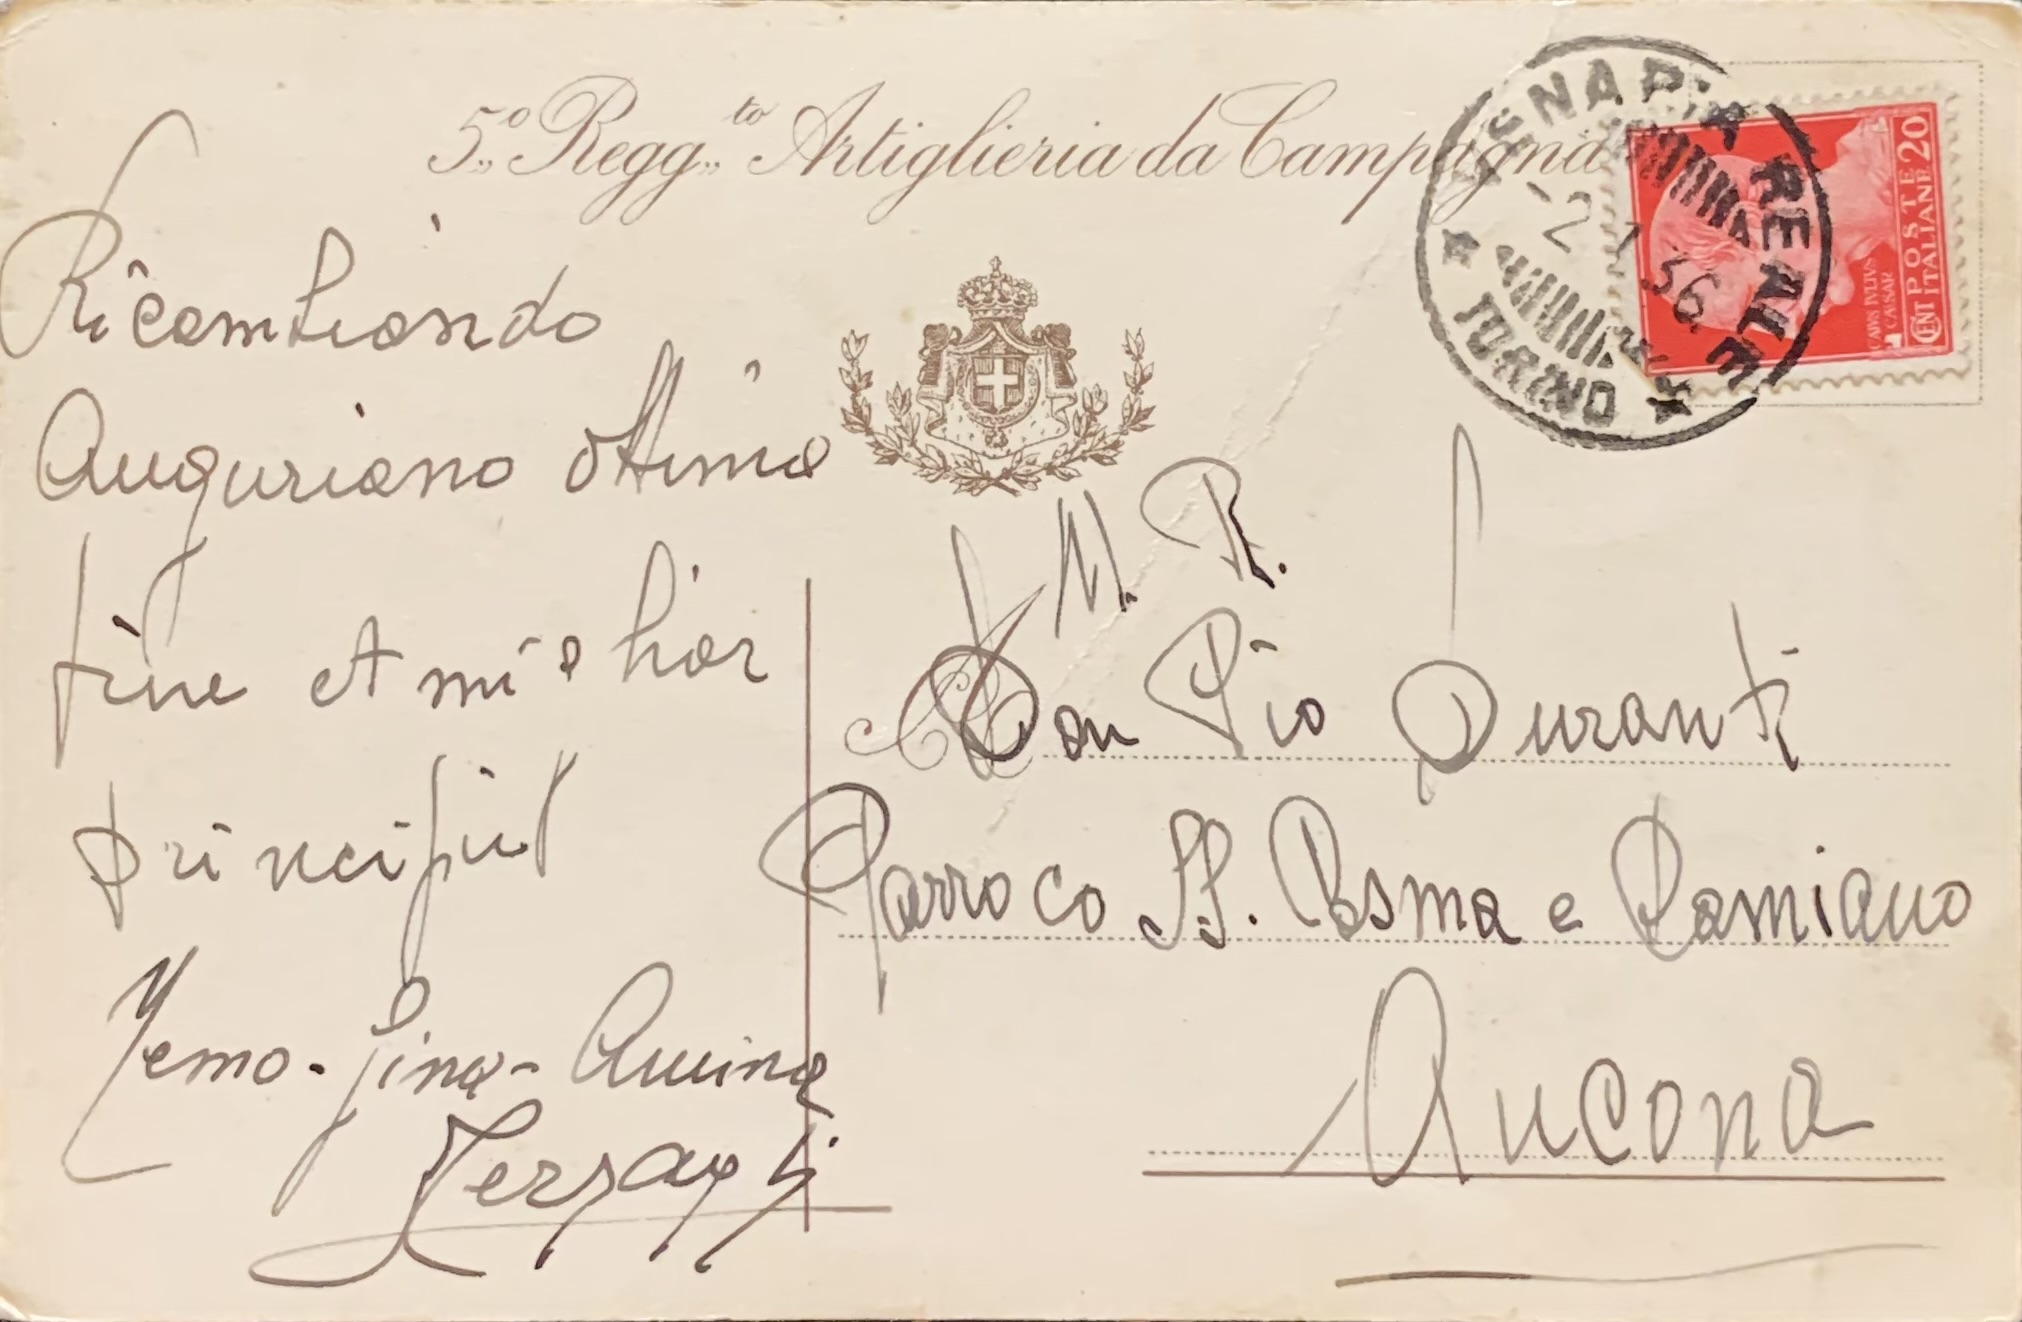 5º Regg.to Artiglieria da Campagna
VENARIA REALE
-2.1.36
TORINO
CENT 20
POSTE ITALIANE
CAIVS IVLIVS CAESAR
Ricambiando
Auguriano ottima
fine et miglior
principio
Memo - Pina - Annina
Terzaghi
M. R.
Don Pio Duranti
Parroco SS. Cosma e Damiano
Ancona